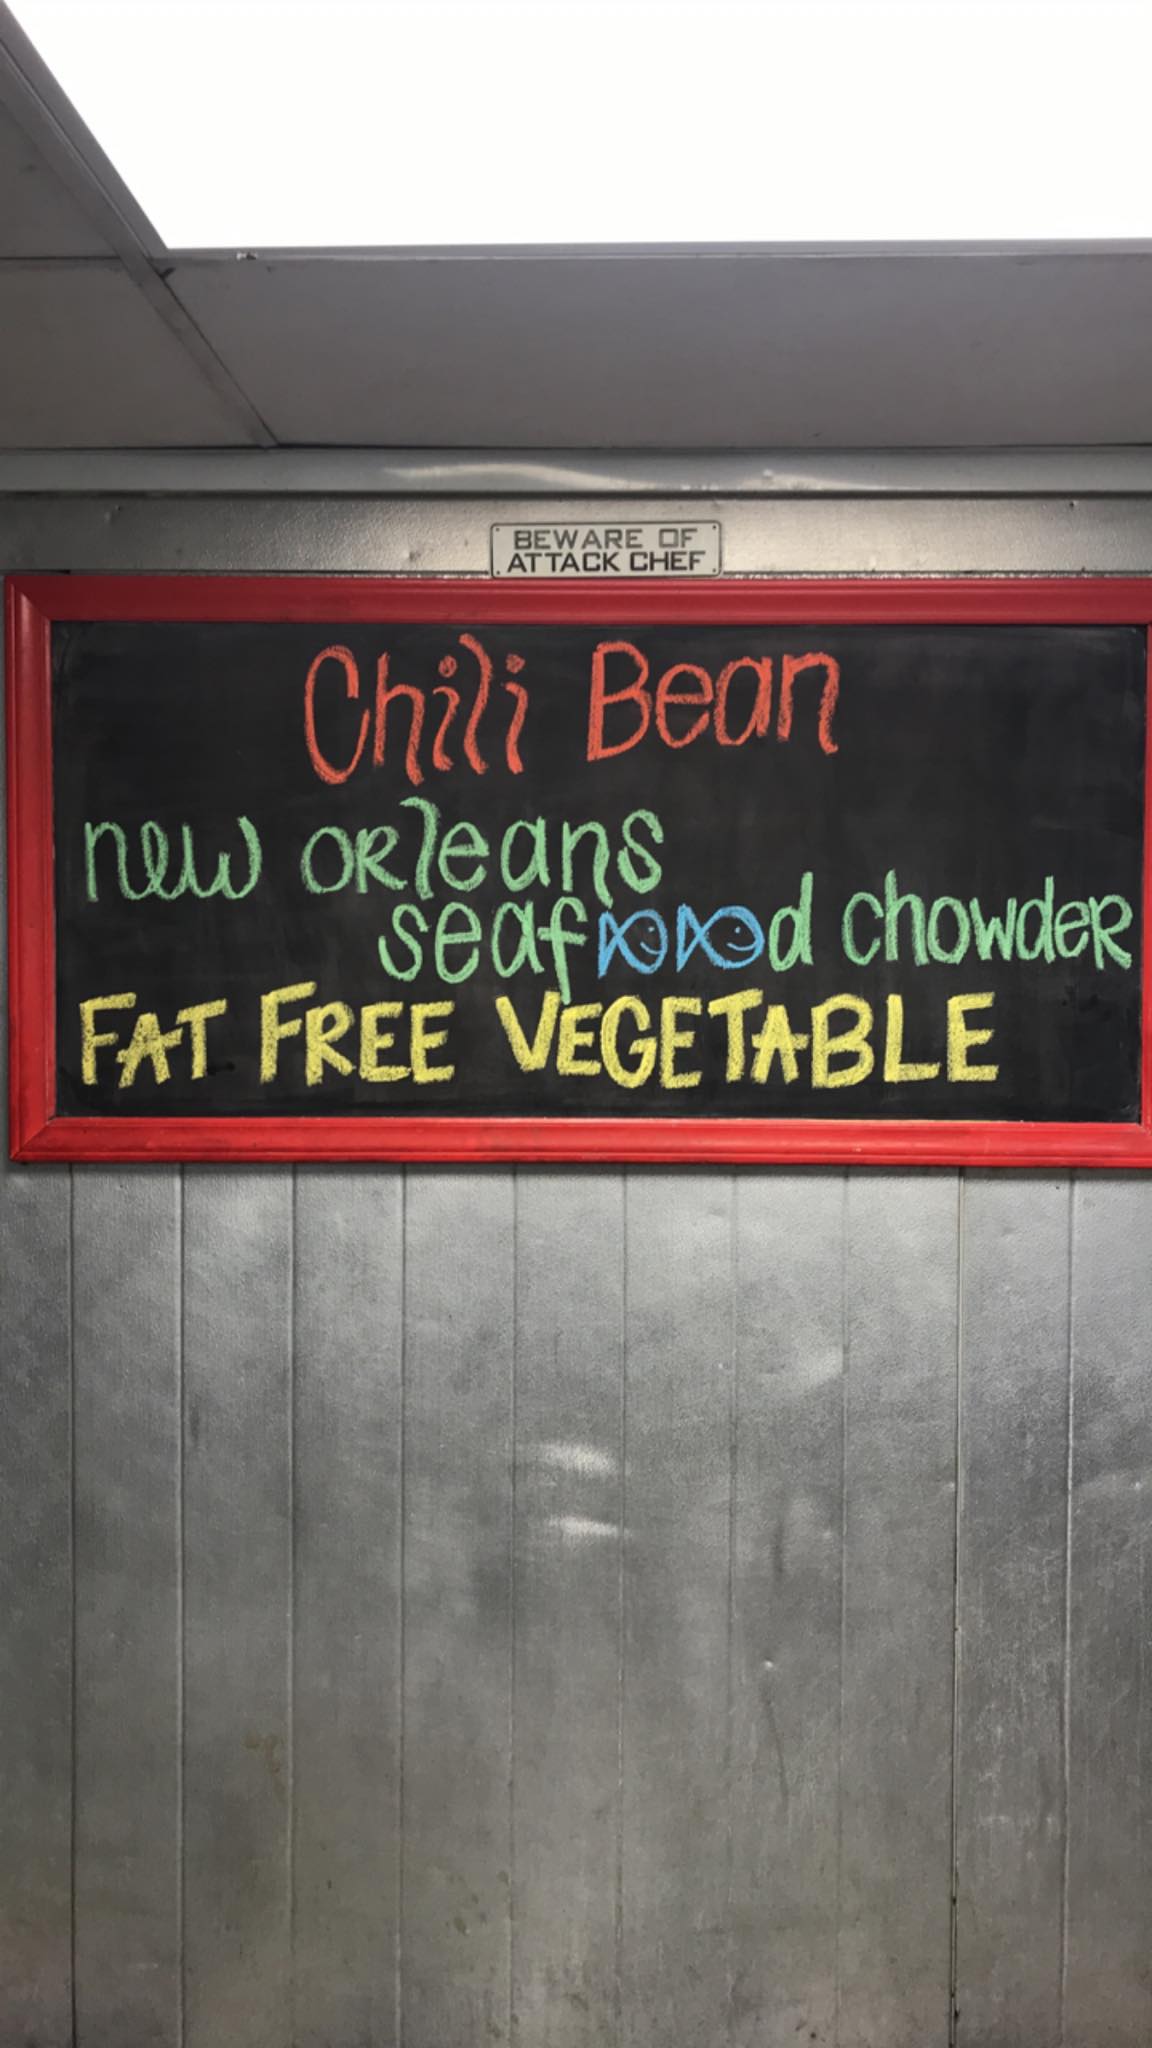 BEWARE OF
ATTACK CHEF
Chili Bean
new orleans
seafood chowder
FAT FREE VEGETABLE